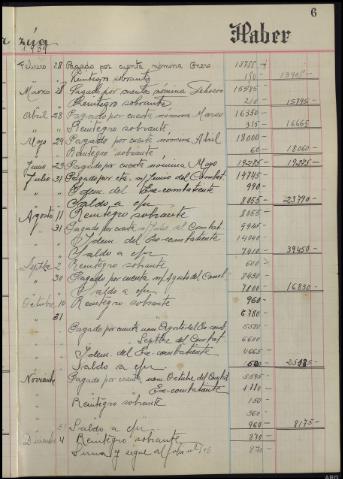 6
Haber
1939
Febrero 28 Pagado por cuenta nómina Enero 13755
" Reintegro sobrante 150 13905
Marzo 28 Pagado por cuenta nómina Febrero
" Reintegro sobrante 210 15795
Abril 28 Pagado por cuenta nómina Marzo 16350
" Reintegro sobrante 315 16665
Mayo 29 Pagado por cuenta nómina Abril 18000
" Reintegro sobrante 60 18060
Junio Pagado por cuenta nómina Mayo
Julio 31 Pagado por cta. Junio del Combat 14745
" Idem del Ex-combatiente 990
" Saldo a c/n 8055 23790
Agosto 11 Reintegro sobrante 8055
" 31 Pagado por cuenta Julio al Combat.
" Idem del Ex-combatiente 14040
" Saldo a c/n 7410 39450
Septbe 2 Reintegro sobrante
" 30 Pagado por cuenta Agosto del Comat
" Saldo a c/n 16890
Octubre 10 Reintegro sobrante 960
31 6780
Pagado por cuenta nom Agosto del Ex-comat
Septbre del Combat 6600
Idem del Ex-combatiente 4665
Saldo a c/n
Noviembre Pagado por cuenta nom Octubre del Combat
Ex-combatiente
" Reintegro sobrante 150
360
Saldo a c/n 960 8175
Diciembre 4 Reintegro sobrante 870
" Suma y sigue al folio 870
ABC